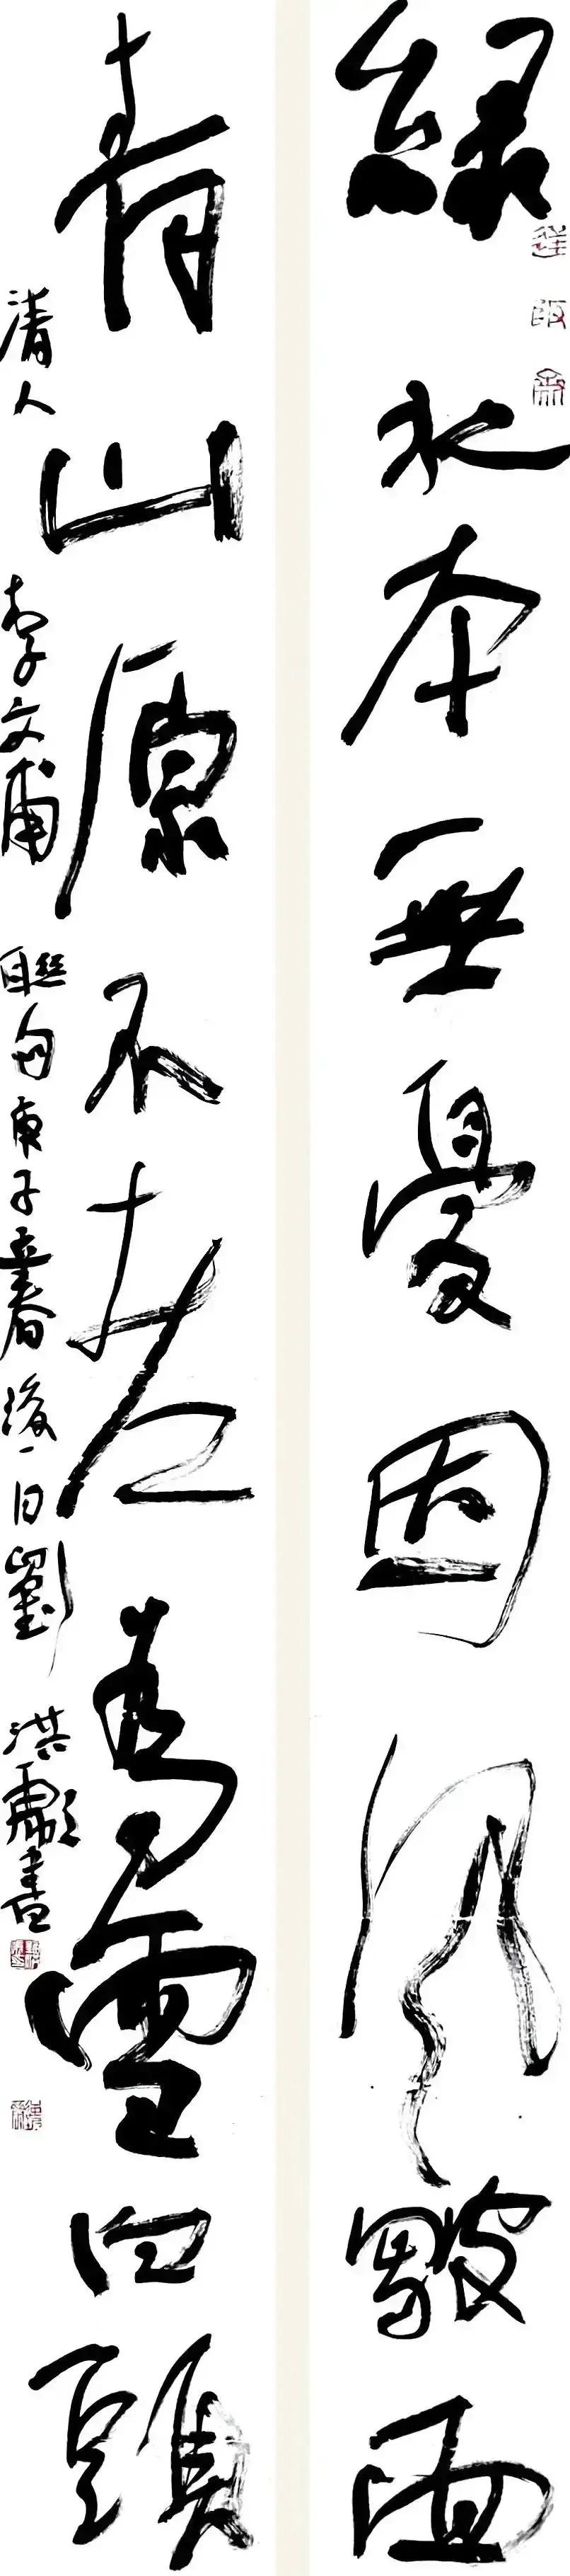 綠水本無憂因風皺面
青山原不老為雪白頭
清人李文甫聯句庚子立春後一日劉洪彪書